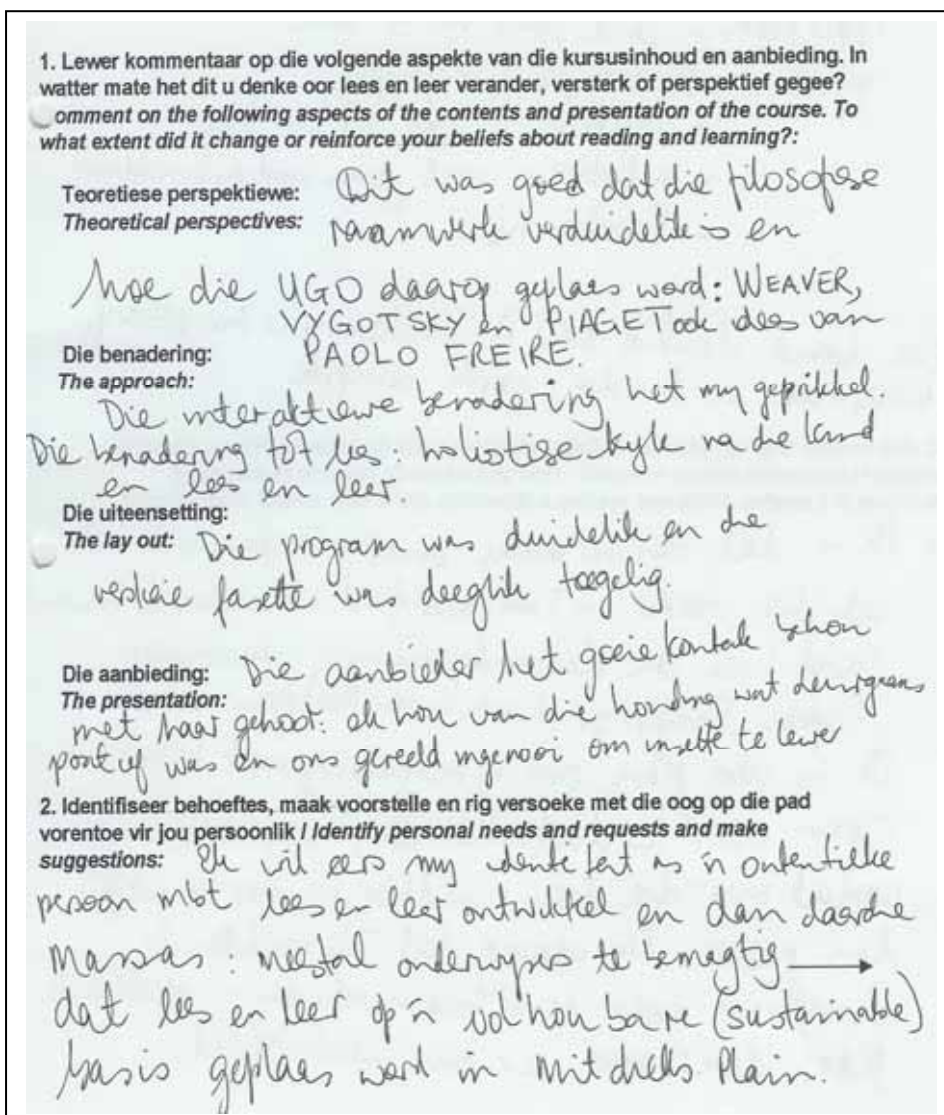 1. Lewer kommentaar op die volgende aspekte van die kursusinhoud en aanbieding. In
watter mate het dit u denke oor lees en leer verander, versterk of perspektief gegee?
omment on the following aspects of the contents and presentation of the course. To
what extent did it change or reinforce your beliefs about reading and learning?:
Teoretiese perspektiewe: Dit was goed dat die filosofiese
Theoretical perspectives: raamwerk verduidelik is en
hoe die UGO daarop geplaas word: WEAVER,
VYGOTSKY en PIAGET ook idees van
Die benadering: PAOLO FREIRE.
The approach:
Die interaktiewe benadering het my geprikkel.
Die benadering tot lees: holistiese kyk na die kind
en lees en leer.
Die uiteensetting:
The lay out: Die program was duidelik en die
verskeie fasette was deeglik toegelig.
Die aanbieding: Die aanbieder het goeie kontak
The presentation:
met haar gehoor: ek hou van die houding wat deurgaans
positief was en ons gereeld ingenooi om insette te lewer
2. Identifiseer behoeftes, maak voorstelle en rig versoeke met die oog op die pad
vorentoe vir jou persoonlik / Identify personal needs and requests and make
suggestions: Ek wil eers my identiteit as 'n outentieke
persoon mbt lees en leer ontwikkel en dan daardie
massas: meestal onderwysers te bemagtig →
dat lees en leer op 'n volhoubare (sustainable)
basis geplaas word in Mitchells Plain.